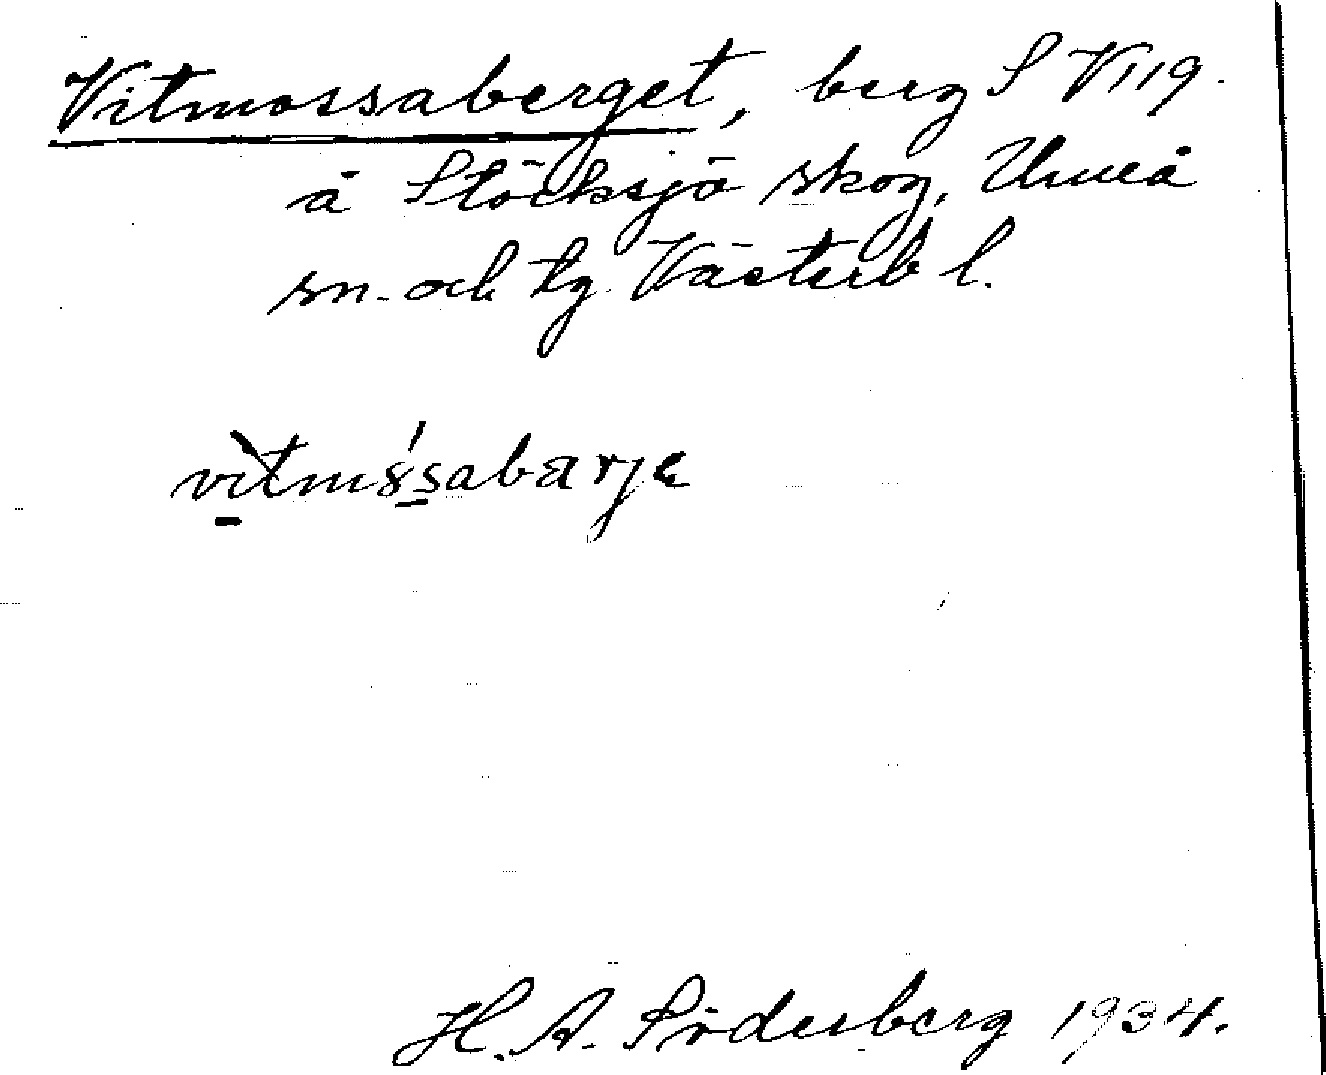 Vitmossaberget, berg S VII9.
å Stöcksjö skog, Umeå
sn. och tg. Västerb l.
vìtmósabarje
H. A. Söderberg 1934.